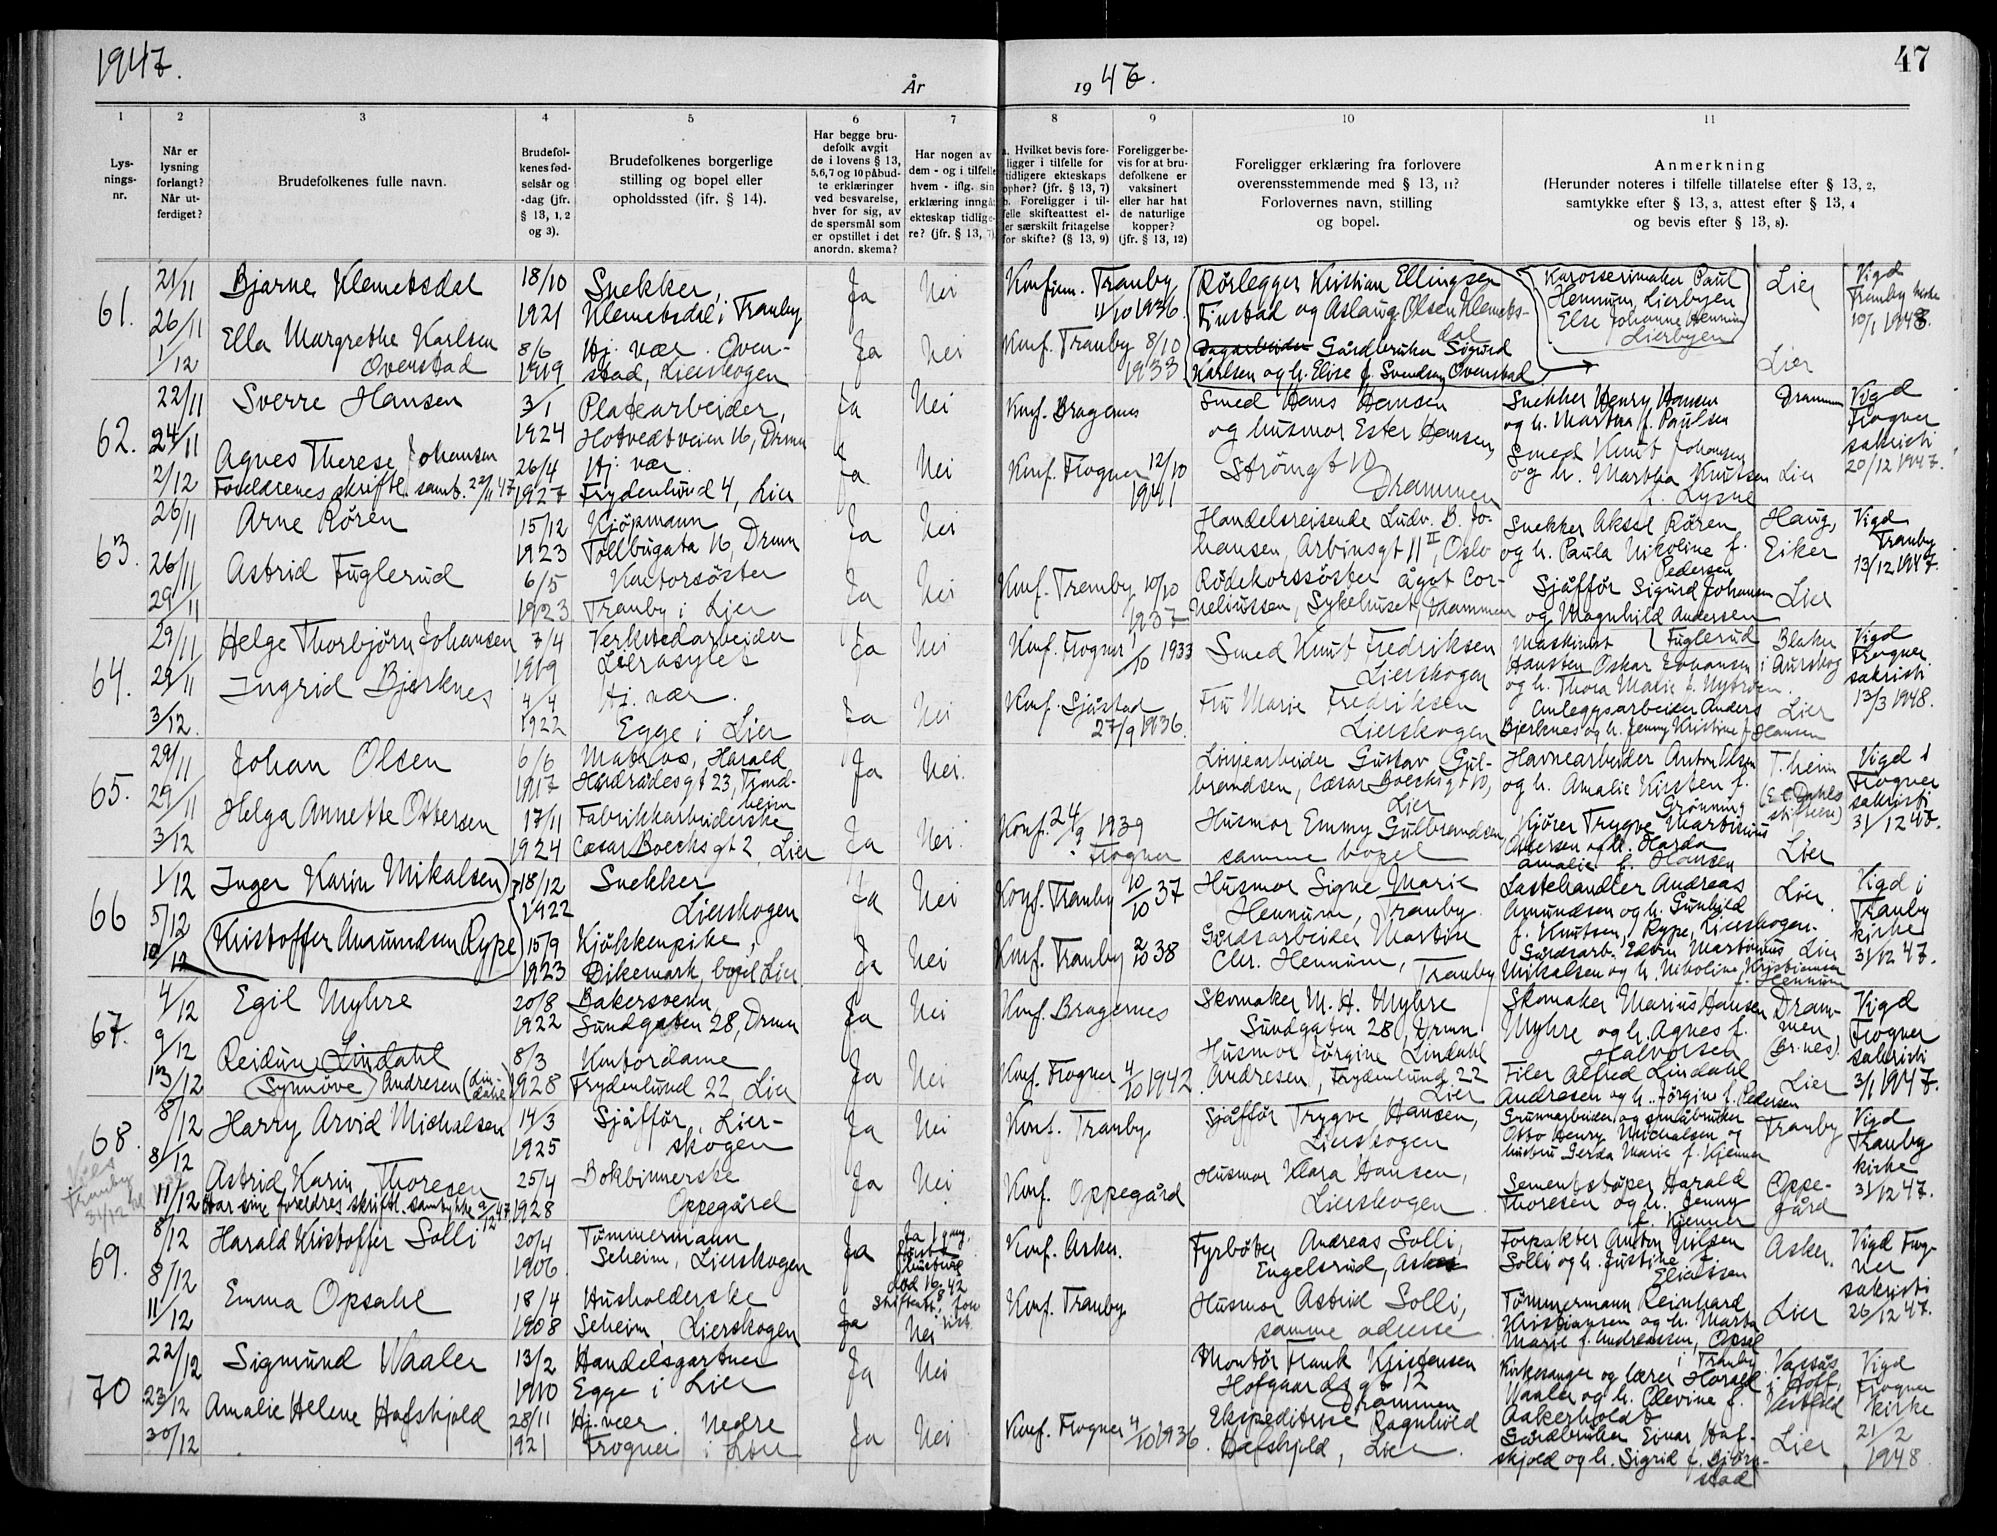 1947.
År
1947.
47
1
2
3
4
5
6
7
8
9
10
11
Lys-
nings-
nr.
Når er
lysning
forlangt?
Når ut-
ferdiget?
Brudefolkenes fulle navn.
Brudefol-
kenes fød-
selsår og
-dag (jfr.
§ 13, 1, 2
og 3).
Brudefolkenes borgerlige
stilling og bopel eller
opholdssted (jfr. § 14).
Har begge bru-
defolk avgit
de i lovens § 13,
5, 6, 7 og 10 påbud-
te erklæringer
ved besvarelse,
hver for sig, av
de spørsmål som
er opstillet i det
anordn. skema?
Har nogen av
dem - og i tilfelle
hvem - iflg. sin
erklæring inngåt
ekteskap tidlige-
re? (jfr. § 13, 7)
a. Hvilket bevis fore-
ligger i tilfelle for
tidligere ekteskaps
ophør? (jfr. § 13, 7)
b. Foreligger i til-
felle skifteattest el-
ler særskilt fritagelse
for skifte? (§ 13, 9)
Foreligger be-
vis for at bru-
defolkene er
vaksinert
eller har hat
de naturlige
kopper?
(jfr. § 13, 12)
Foreligger erklæring fra forlovere
overensstemmende med § 13, 11?
Forlovernes navn, stilling
og bopel.
Anmerkning
(Herunder noteres i tilfelle tillatelse efter § 13, 2,
samtykke efter § 13, 3, attest efter § 13, 4
og bevis efter § 13, 8).
61.
21/11
26/11
1/12
Bjarne Klemetsdal
Ella Margrethe Karlsen
Overstad
18/10
1921
8/6
1919
Snekker,
Klemetsdal i Tranby
Hj. vær. Over-
stad, Lierskogen
Ja
Ja
Nei
Nei
Konfirm. Tranby
11/10 1936.
Konf. Tranby 8/10
1933
Rørlegger Kristian Ellingsen
Finstad og Aslaug Olsen Klemets-
dal
Dagarbeider Gårdbruker Sigurd
Karlsen og h. Elise f. Svendsen, Overstad
Karosserimaker Paul
Hennum, Lierbyen
Else Johanne Hennum
Lierbyen
Lier
Lier
Vigd
Tranby kirke
10/1 1948.
62.
22/11
24/11
2/12
Sverre Hansen
Agnes Therese Johansen
Foreldrenes skriftl. samt. 22/11 47
3/1
1924
26/4
1927
Platearbeider,
Hotvedtveien 16, Drmn
Hj. vær.
Frydenlund 4, Lier
Ja
Ja
Nei
Nei
Konf. Bragernes
Konf. Frogner 12/10
1941
Smed Hans Hansen
og husmor Ester Hansen,
Strømgt 10
Drammen
Snekker Henry Hansen
og h. Martha f. Paulsen
Smed Knut Johansen
og h. Martha Knutsen
f. Lysne
Drammen
Lier
Vigd
Frogner
sakristi
20/12 1947.
63.
26/11
26/11
29/11
Arne Røren
Astrid Fuglerud
15/12
1923
6/5
1923
Kjøpmann
Tollbugata 16, Drmn
Kontorsøster
Tranby i Lier
Ja
Ja
Nei
Nei
Konf. Tranby 10/10
1937
Handelsreisende Ludv. B. Jo-
hansen, Arbinsgt 11 II, Oslo
Rødekorssøster Ågot Cor-
neliussen, Sykehuset, Drammen
Snekker Aksel Røren
og h. Paula Nikoline f.
Pedersen
Sjåffør Sigurd Johansen
og Magnhild Andersen
Fuglerud
Haug,
Eiker
Lier
Vigd
Tranby
13/12 1947.
64.
29/11
29/11
3/12.
Helge Thorbjørn Johansen
Ingrid Bjerknes
7/4
1919
4/4
1922
Verkstedarbeider
Lierasylet
Hj. vær.
Egge i Lier
Ja
Ja
Nei
Nei
Konf. Frogner
/10 1933
Konf. Sjåstad
27/9 1936.
Smed Knut Fredriksen
Lierskogen
Fru Marie Fredriksen
Lierskogen
Maskinist
Hansten Oskar Johansen
og h. Thora Marie f. Nybroen.
Anleggsarbeider Anders
Bjerknes og h. Jenny Kristine f. Hansen
Blaker
i Aurskog
Lier
Vigd
Frogner
sakristi
13/3 1948.
65.
29/11
29/11
3/12
Johan Olsen
Helga Annette Ottersen
6/6
1917
17/11
1924
Matros, Harald
Hardrådesgt 23, Trond-
heim
Fabrikkarbeiderske
Cæsar Boecksgt 2, Lier
Ja
Ja
Nei.
Nei.
Konf. 24/9 1939
Frogner
Linjearbeider Gustav Gul-
brandsen, Cæsar Boecksgt 10,
Lier
Husmor Emmy Gulbrandsen
samme bopel
Havnearbeider Anton Olsen
og h. Amalie Kirsten f.
Grønning
Kjører Trygve Martinius
Ottersen og h. Harda
Amalie f. Hansen
T.heim
(E.C. Dahls
stiftelse)
Lier
Vigd i
Frogner
sakristi
31/12 47.
66
1/12
5/12
10/12
Inger Karin Mikalsen
Kristoffer Amundsen Rype
18/12
1922
15/9
1923
Snekker
Lierskogen
Kjøkkenpike,
Dikemark, bopel Lier
Ja
Ja
Nei
Nei
Konf. Tranby 10/10 37
Konf. Tranby 2/10 38
Husmor Signe Marie
Hennum, Tranby.
Gårdsarbeider Martin
Chr. Hennum, Tranby
Lastehandler Andreas
Amundsen og h. Gunhild
f. Knutsen, Rype, Lierskogen.
Gårdsarb. Edvin Martinius
Mikalsen og h. Nikoline Kristiansen
f. Hennum
Lier
Lier
Vigd i
Tranby
kirke
31/12 47.
67.
4/12
9/12
13/12
Egil Myhre
Reidun Lindahl
(Synnøve) Andresen (Lin-
dahl)
20/8
1922
8/3
1928
Bakersvenn
Sundgaten 28, Drmn
Kontordame
Frydenlund 22, Lier
Ja
Ja
Nei
Nei
Konf. Bragernes
Konf. Frogner 4/10 1942
Skomaker M. H. Myhre
Sundgaten 28, Drmn
Husmor Jørgine Lindahl
Andresen, Frydenlund 22
Lier
Skomaker Marius Hansen
Myhre og h. Agnes f.
Halvorsen
Filer Alfred Lindahl
Andresen og h. Jørgine f. Pedersen
Dram-
men
(Br.nes)
Lier
Vigd
Frogner
sakristi
3/1 1947.
68.
8/12
8/12
11/12
Vies
Tranby
31/12 kl
Harry Arvid Michalsen
Astrid Karin Thoresen
Har sine foreldres skriftl. samtykke 9/12 47
14/3
1925
25/4
1928
Sjåffør, Lier-
skogen
Bokbinnerske
Oppegård
Ja
Ja
Nei
Nei
Konf. Tranby
Konf. Oppegård
Sjåffør Trygve Hansen,
Lierskogen
Husmor Klara Hansen,
Lierskogen
Grunnarbeider og småbruker
Otto Henry Michalsen og
hustru Gerda Marie f. Kjenner
Sementstøper Harald
Thoresen og h. Jenny
f. Kjenner
Tranby
Oppe-
gård
Vigd
Tranby
kirke
31/12 47.
69.
8/12
8/12
11/12
Harald Kristoffer Solli
Emma Opsahl
20/4
1906
18/4
1908
Tømmermann
Seheim, Lierskogen
Husholderske
Seheim, Lierskogen
Ja
Ja
Ja 1 gang.
første
hustru
død 16/8 42
Skifteatt.
Nei
Konf. Asker.
Konf. Tranby
Fyrbøter Andreas Solli,
Engelsrud, Asker
Husmor Astrid Solli,
samme adresse
Forpakter Anton Nilsen
Solli og h. Justine f.
Eliassen
Tømmermann Reinhard
Kristiansen og h. Marta
Marie f. Andreassen, Opsal
i Tranby
Asker.
Lier
Vigd Frog-
ner
sakristi
26/12 47.
70
22/12
23/12
30/12
Sigmund Waaler
Amalie Helene Hafskjold
13/2
1910
28/11
1921
Handelsgartner
Egge i Lier
Hj. vær. Nedre
Frogner i Lier
Ja
Ja
Nei
Nei
Konf. Frogner 4/10 1936.
Montør Frank Kristensen
Hofgaards gt 12
Drammen
Ekspeditrise Ragnhild
Hafskjold, Lier.
Kirkesanger og lærer Harald
Waaler og h. Olevine f.
Aakerholdt
Gårdbruker Einar Haf-
skjold og h. Sigrid f. Bjørn-
stad
Vassås
i Hoff,
Vestfold
Lier
Vigd
Frogner
kirke
21/2
1948